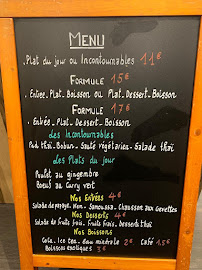 MENU
. Plat du jour ou Incontournables 11€
FORMULE 15€
. Entrée. Plat. Boisson ou Plat. Dessert. Boisson
FORMULE 17€
. Entrée. Plat. Dessert. Boisson
Les Incontournables
Pad thaï. Bobun. Santé végétarien. Salade thaï
Les Plats du jour
Poulet au gingembre
Boeuf au Curry vert
Nos Entrées 4€
Salade de papaye. Nem. Samoussa. Chausson aux Crevettes
Nos Desserts 4€
Salade de fruits frais. Fruits frais. Desserts thaï
Nos Boissons
Coca. Ice Tea. Eau minérale 2€ Café 1.5€
Boissons exotiques 3€